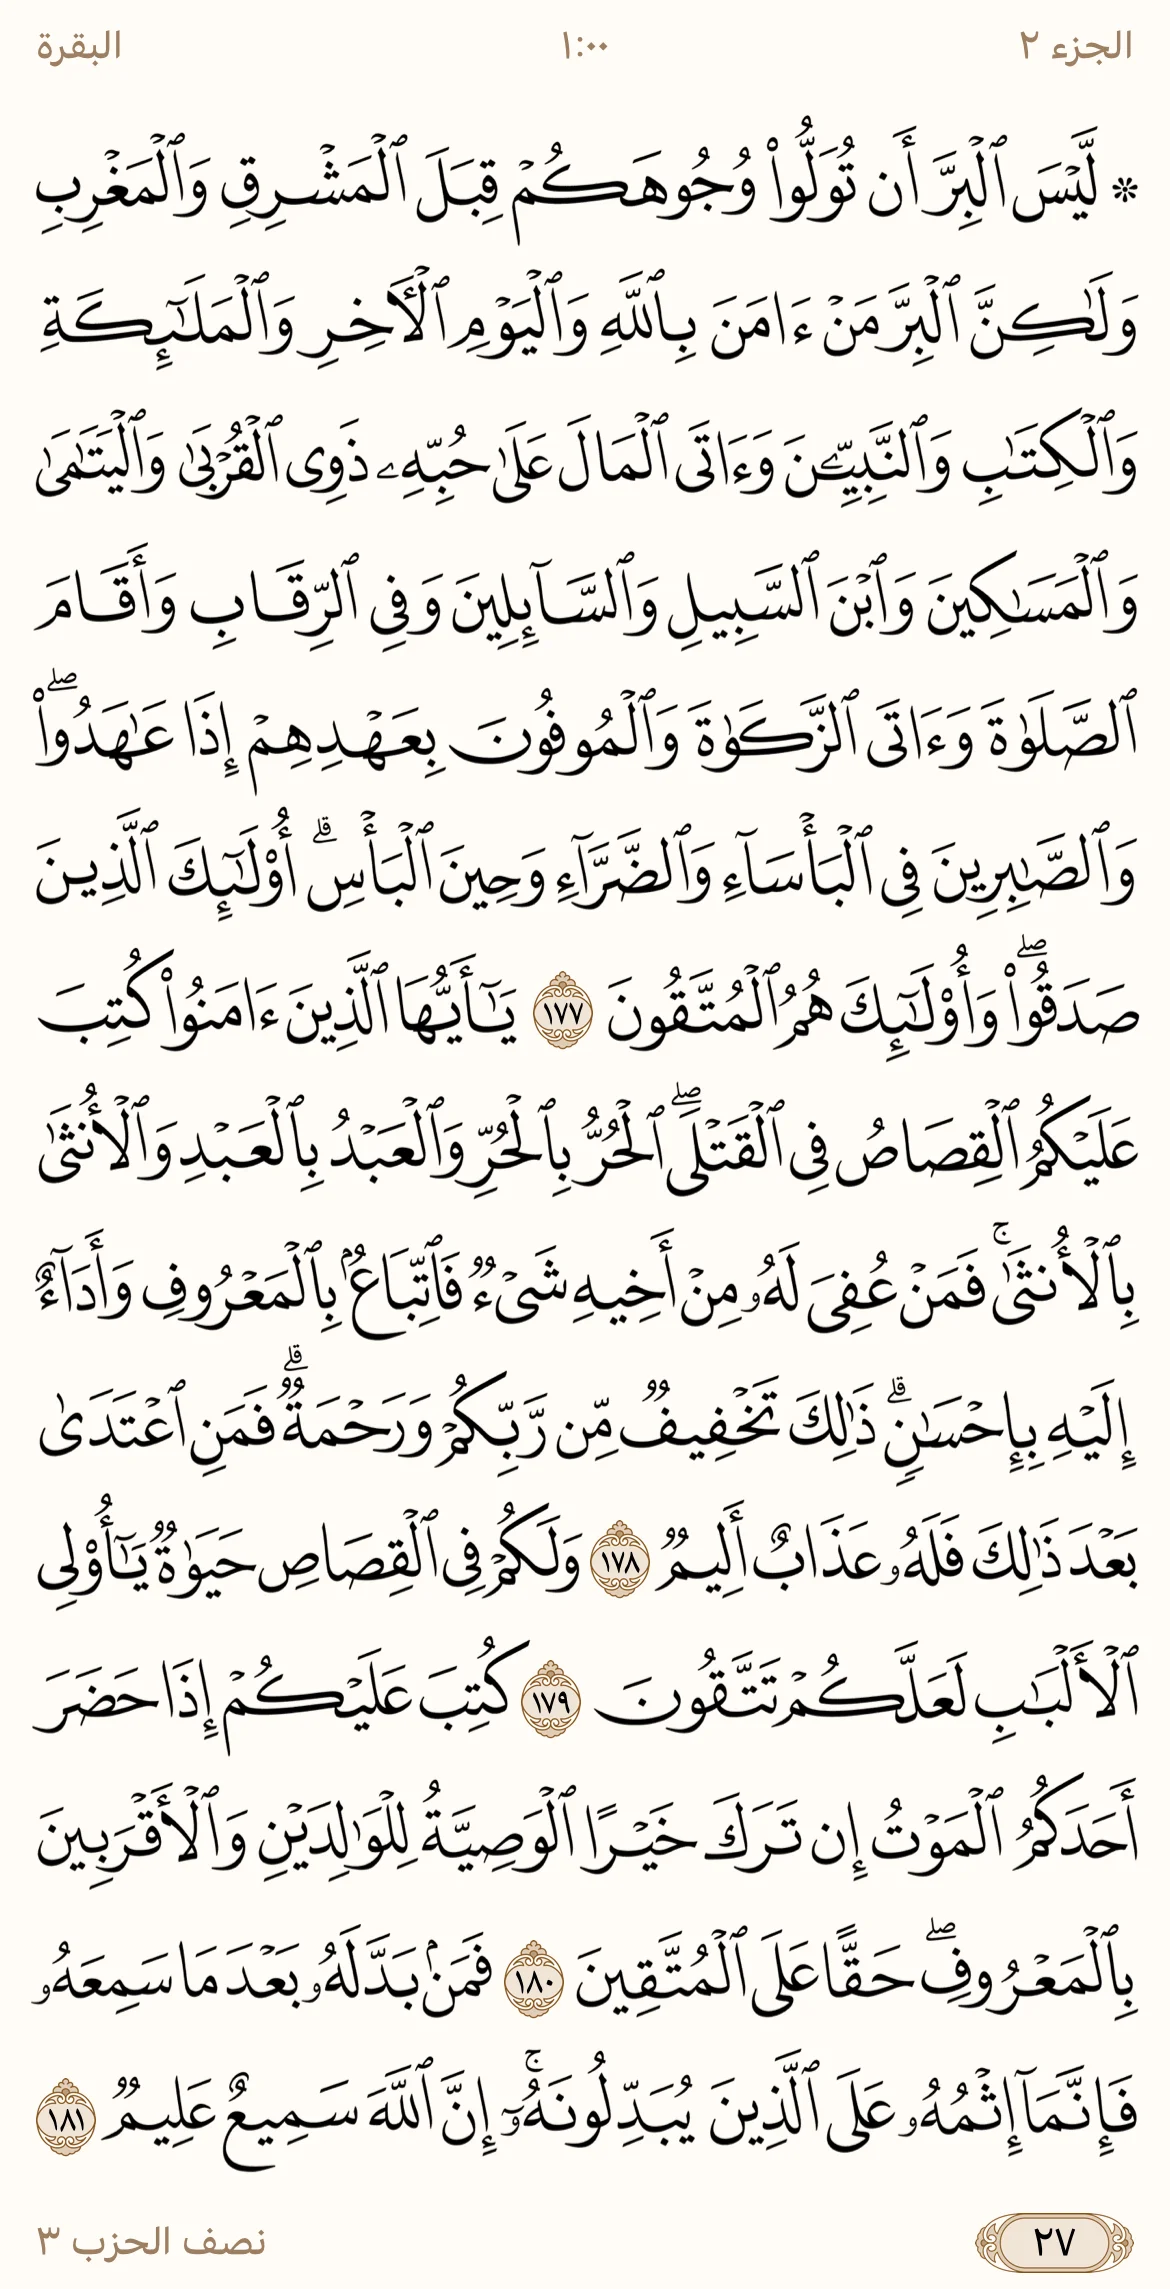 الجزء ٢
١:٠٠
البقرة
۞ لَّيْسَ ٱلْبِرَّ أَن تُوَلُّوا۟ وُجُوهَكُمْ قِبَلَ ٱلْمَشْرِقِ وَٱلْمَغْرِبِ
وَلَـٰكِنَّ ٱلْبِرَّ مَنْ ءَامَنَ بِٱللَّهِ وَٱلْيَوْمِ ٱلْـَٔاخِرِ وَٱلْمَلَـٰٓئِكَةِ
وَٱلْكِتَـٰبِ وَٱلنَّبِيِّـۧنَ وَءَاتَى ٱلْمَالَ عَلَىٰ حُبِّهِۦ ذَوِى ٱلْقُرْبَىٰ وَٱلْيَتَـٰمَىٰ
وَٱلْمَسَـٰكِينَ وَٱبْنَ ٱلسَّبِيلِ وَٱلسَّآئِلِينَ وَفِى ٱلرِّقَابِ وَأَقَامَ
ٱلصَّلَوٰةَ وَءَاتَى ٱلزَّكَوٰةَ وَٱلْمُوفُونَ بِعَهْدِهِمْ إِذَا عَـٰهَدُوا۟ ۖ
وَٱلصَّـٰبِرِينَ فِى ٱلْبَأْسَآءِ وَٱلضَّرَّآءِ وَحِينَ ٱلْبَأْسِ ۗ أُو۟لَـٰٓئِكَ ٱلَّذِينَ
صَدَقُوا۟ ۖ وَأُو۟لَـٰٓئِكَ هُمُ ٱلْمُتَّقُونَ ١٧٧ يَـٰٓأَيُّهَا ٱلَّذِينَ ءَامَنُوا۟ كُتِبَ
عَلَيْكُمُ ٱلْقِصَاصُ فِى ٱلْقَتْلَى ۖ ٱلْحُرُّ بِٱلْحُرِّ وَٱلْعَبْدُ بِٱلْعَبْدِ وَٱلْأُنثَىٰ
بِٱلْأُنثَىٰ ۚ فَمَنْ عُفِىَ لَهُۥ مِنْ أَخِيهِ شَىْءٌ فَٱتِّبَاعٌۢ بِٱلْمَعْرُوفِ وَأَدَآءٌ
إِلَيْهِ بِإِحْسَـٰنٍ ۗ ذَٰلِكَ تَخْفِيفٌ مِّن رَّبِّكُمْ وَرَحْمَةٌ ۗ فَمَنِ ٱعْتَدَىٰ
بَعْدَ ذَٰلِكَ فَلَهُۥ عَذَابٌ أَلِيمٌ ١٧٨ وَلَكُمْ فِى ٱلْقِصَاصِ حَيَوٰةٌ يَـٰٓأُو۟لِى
ٱلْأَلْبَـٰبِ لَعَلَّكُمْ تَتَّقُونَ ١٧٩ كُتِبَ عَلَيْكُمْ إِذَا حَضَرَ
أَحَدَكُمُ ٱلْمَوْتُ إِن تَرَكَ خَيْرًا ٱلْوَصِيَّةُ لِلْوَٰلِدَيْنِ وَٱلْأَقْرَبِينَ
بِٱلْمَعْرُوفِ ۖ حَقًّا عَلَى ٱلْمُتَّقِينَ ١٨٠ فَمَنۢ بَدَّلَهُۥ بَعْدَ مَا سَمِعَهُۥ
فَإِنَّمَآ إِثْمُهُۥ عَلَى ٱلَّذِينَ يُبَدِّلُونَهُۥٓ ۚ إِنَّ ٱللَّهَ سَمِيعٌ عَلِيمٌ ١٨١
٢٧
نصف الحزب ٣